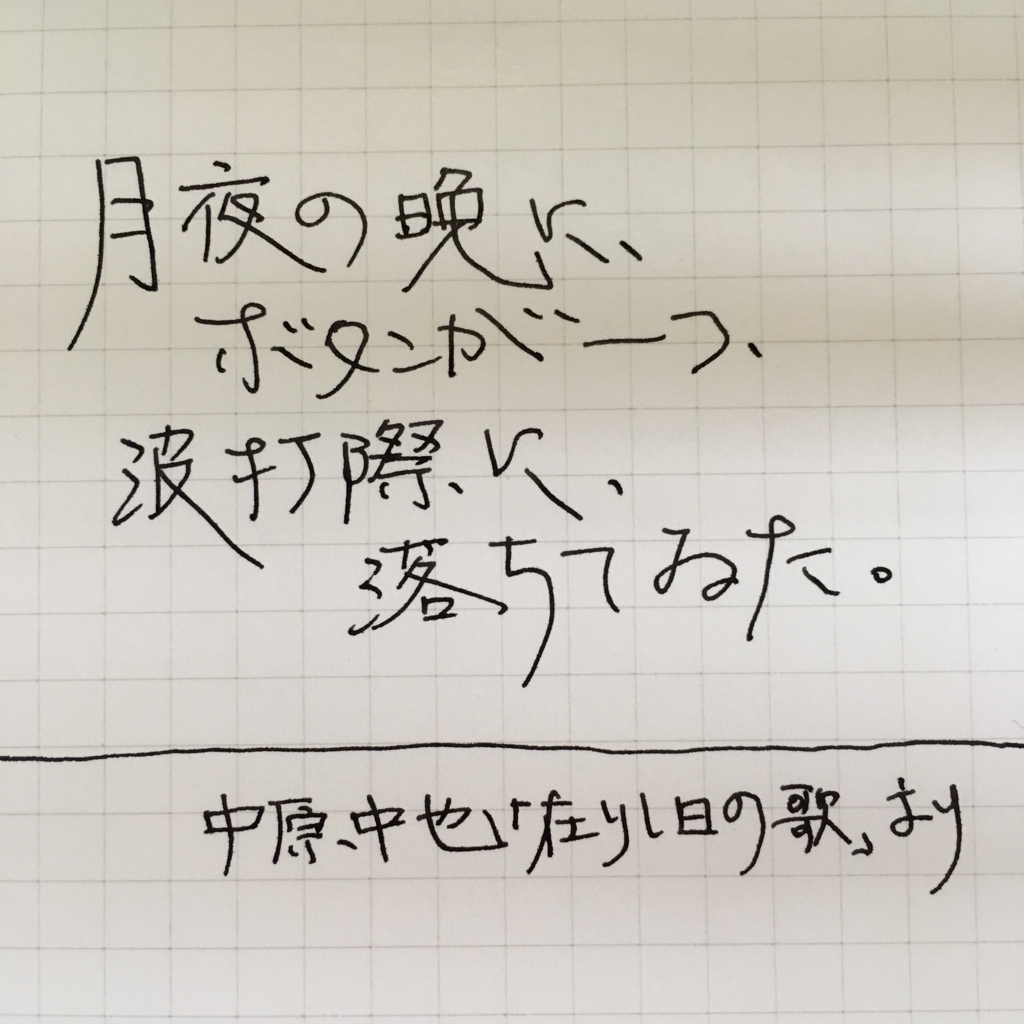 月夜の晩に、
ボタンが一つ、
波打際に、
落ちてゐた。
中原中也「在りし日の歌」より